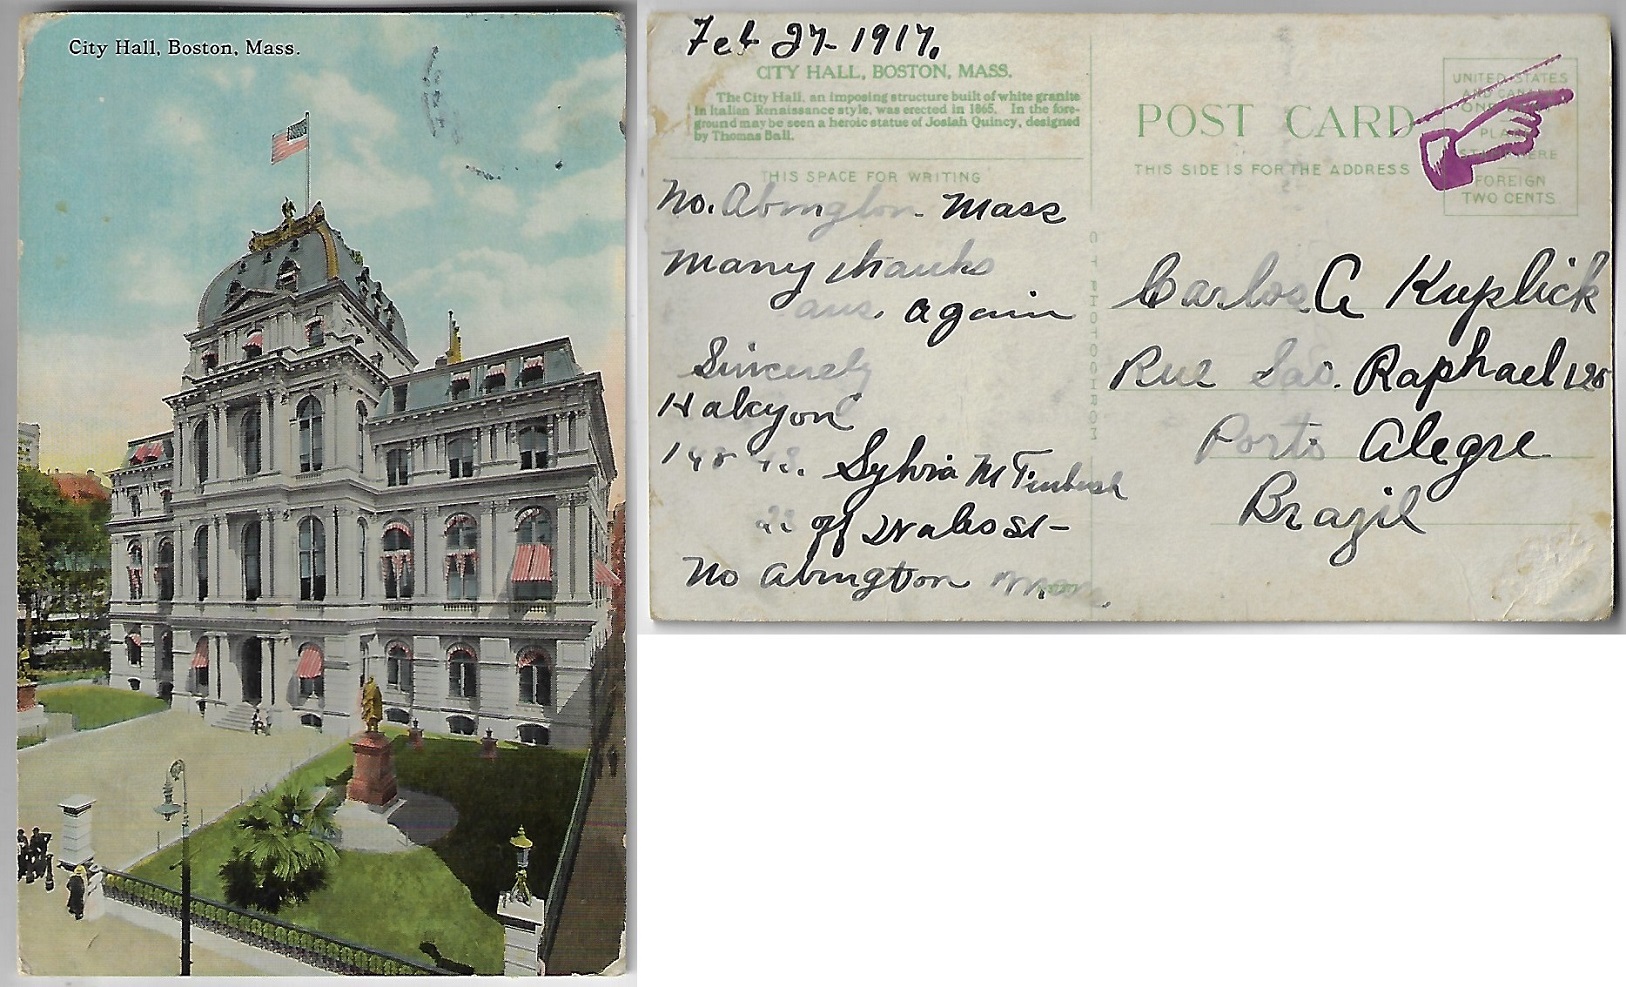 City Hall, Boston, Mass.
Feb 27- 1917.
CITY HALL, BOSTON, MASS.
The City Hall, an imposing structure built of white granite
in Italian Renaissance style, was erected in 1865. In the fore-
ground may be seen a heroic statue of Josiah Quincy, designed
by Thomas Ball.
THIS SPACE FOR WRITING
No. Abington Mass
Many thanks
ans. again
Sincerely
Halcyon
Sylvia M
of Wales St-
No Abington Mass.
POST CARD
THIS SIDE IS FOR THE ADDRESS
UNITED STATES
AND CANADA
ONE
PLACE
STAMP HERE
FOREIGN
TWO CENTS
Carlos A Kuplick
Rue Sao. Raphael 128
Porto Alegre
Brazil